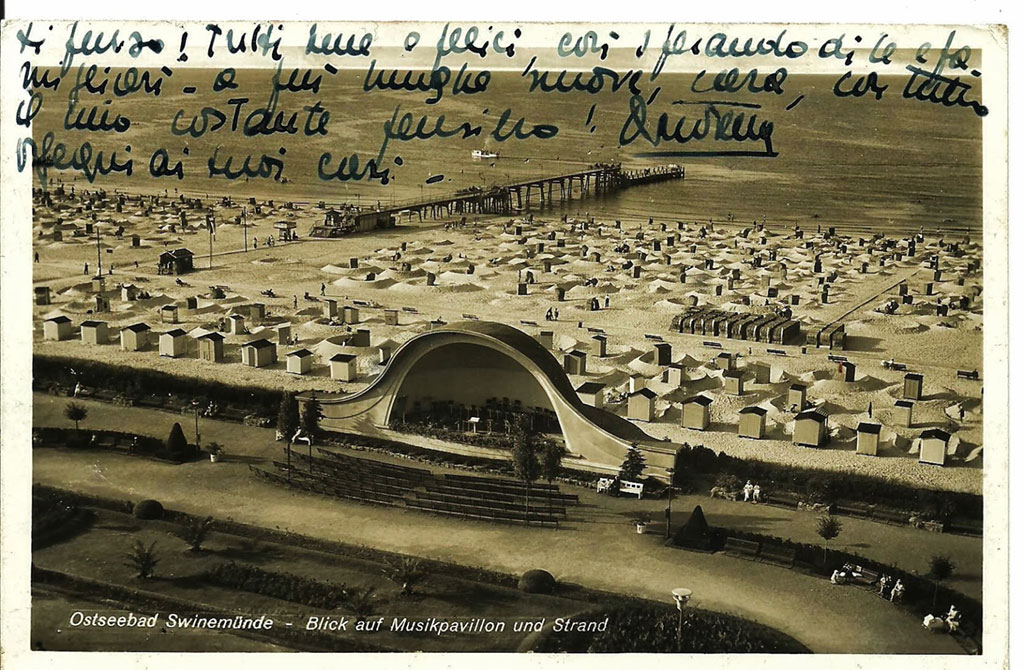 ti penso! Tutti bene e felici, così sperando di te e fa-
migliari - a più lunghe nuove, cara, con tutto
il mio costante pensiero!
ai tuoi cari. -
Ostseebad Swinemünde - Blick auf Musikpavillon und Strand